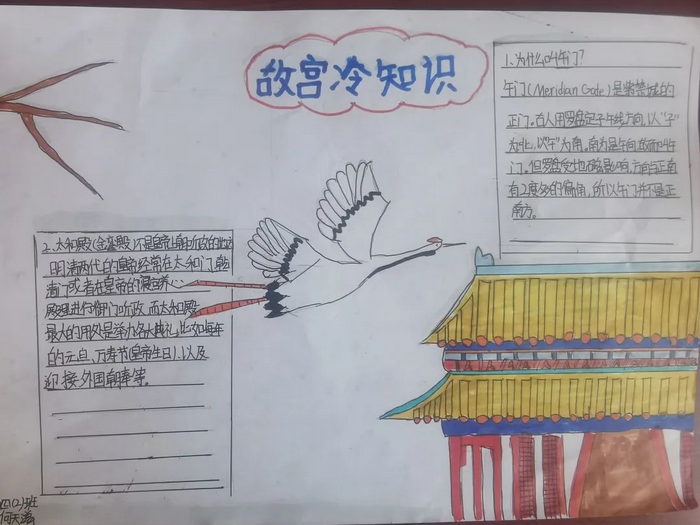 故宫冷知识
1、为什么叫午门?
午门(Meridian Gate)是紫禁城的
正门。古人用罗盘定子午线方向,以“子”
为北,以“午”为南。南方是午向,故而叫午
门。但罗盘受地磁影响,方向与正南
有2度多的偏角,所以午门并不是正
南方。
2、太和殿(金銮殿)不是皇帝上朝听政的地方
明清两代的皇帝经常在太和门、乾
清门或者在皇帝的寝宫养心
殿里进行御门听政,而太和殿
最大的用处是举办各大典礼,比如每年
的元旦、万寿节(皇帝生日),以及
迎接外国朝奉等。
四(2)班
何天